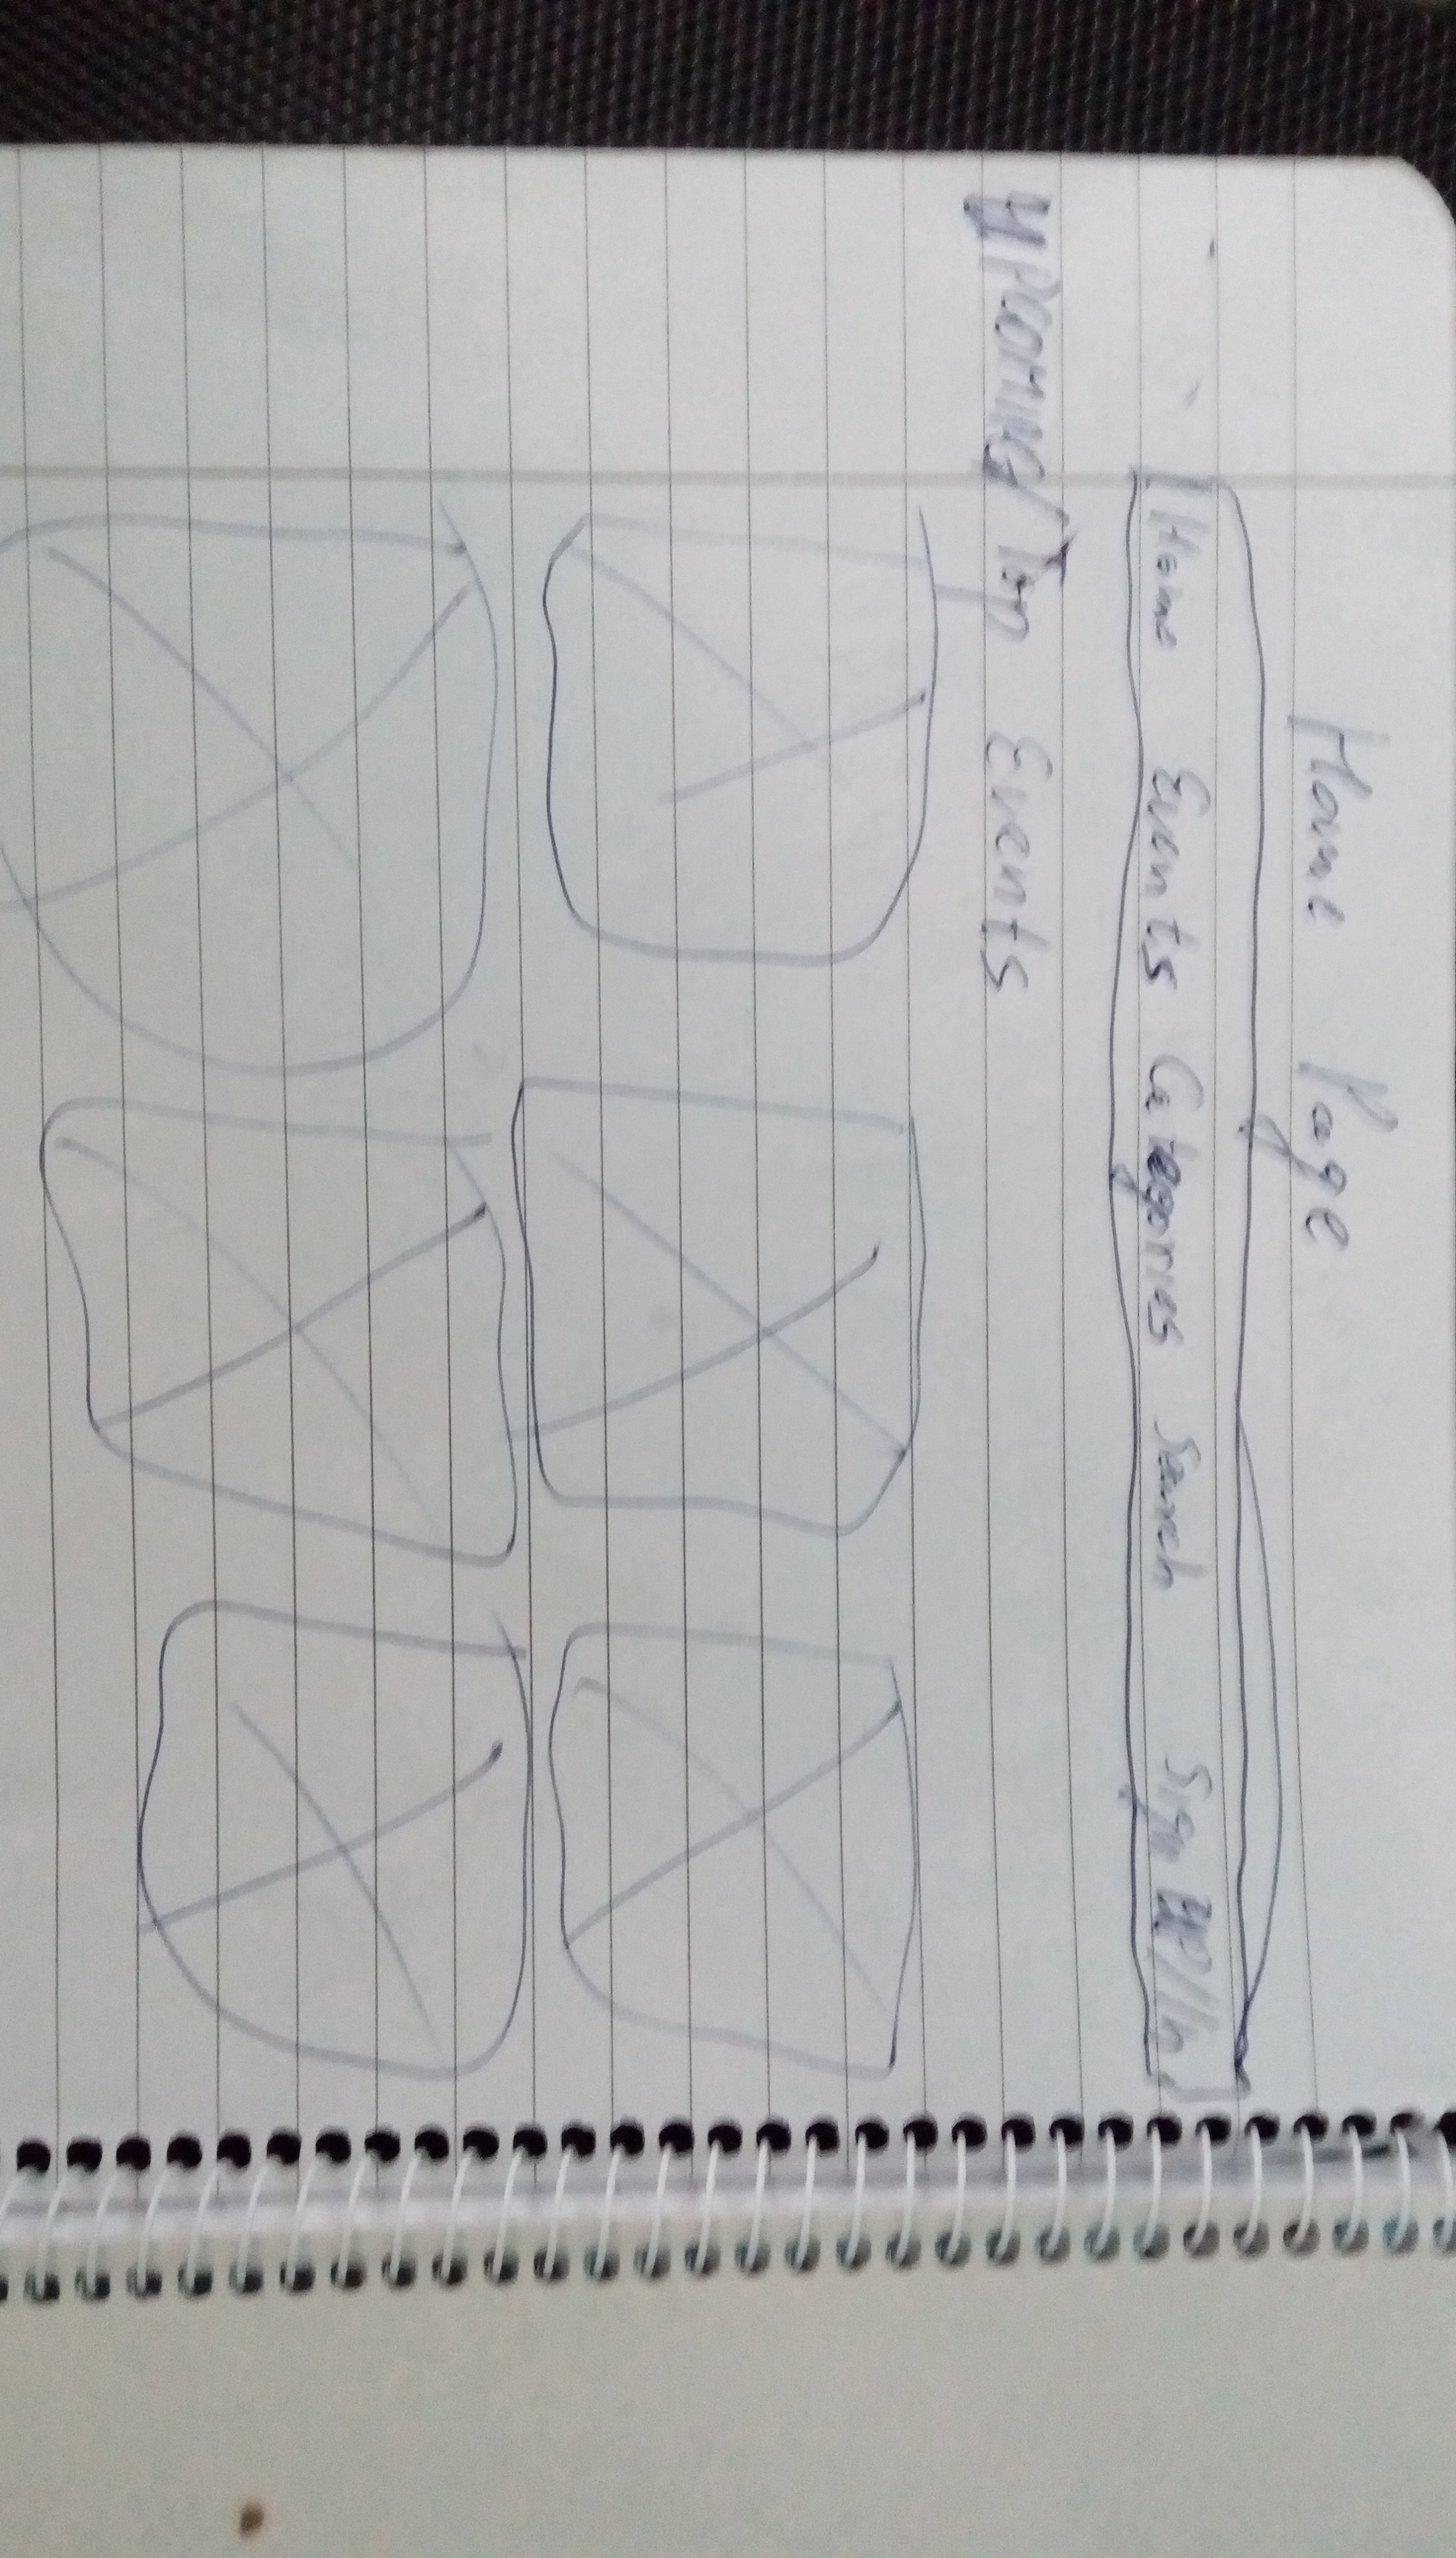 Home Page
Home Events Categories Search Sign UP/In
UPCOMING/Top Events